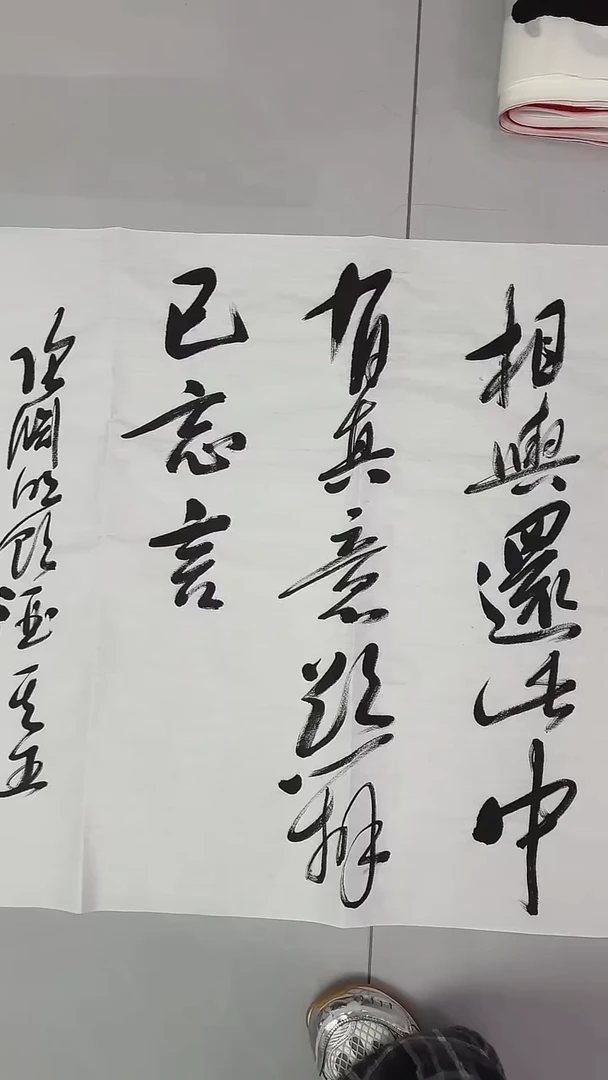 相與還此中
有真意欲辯
已忘言
陶淵明飲酒其五